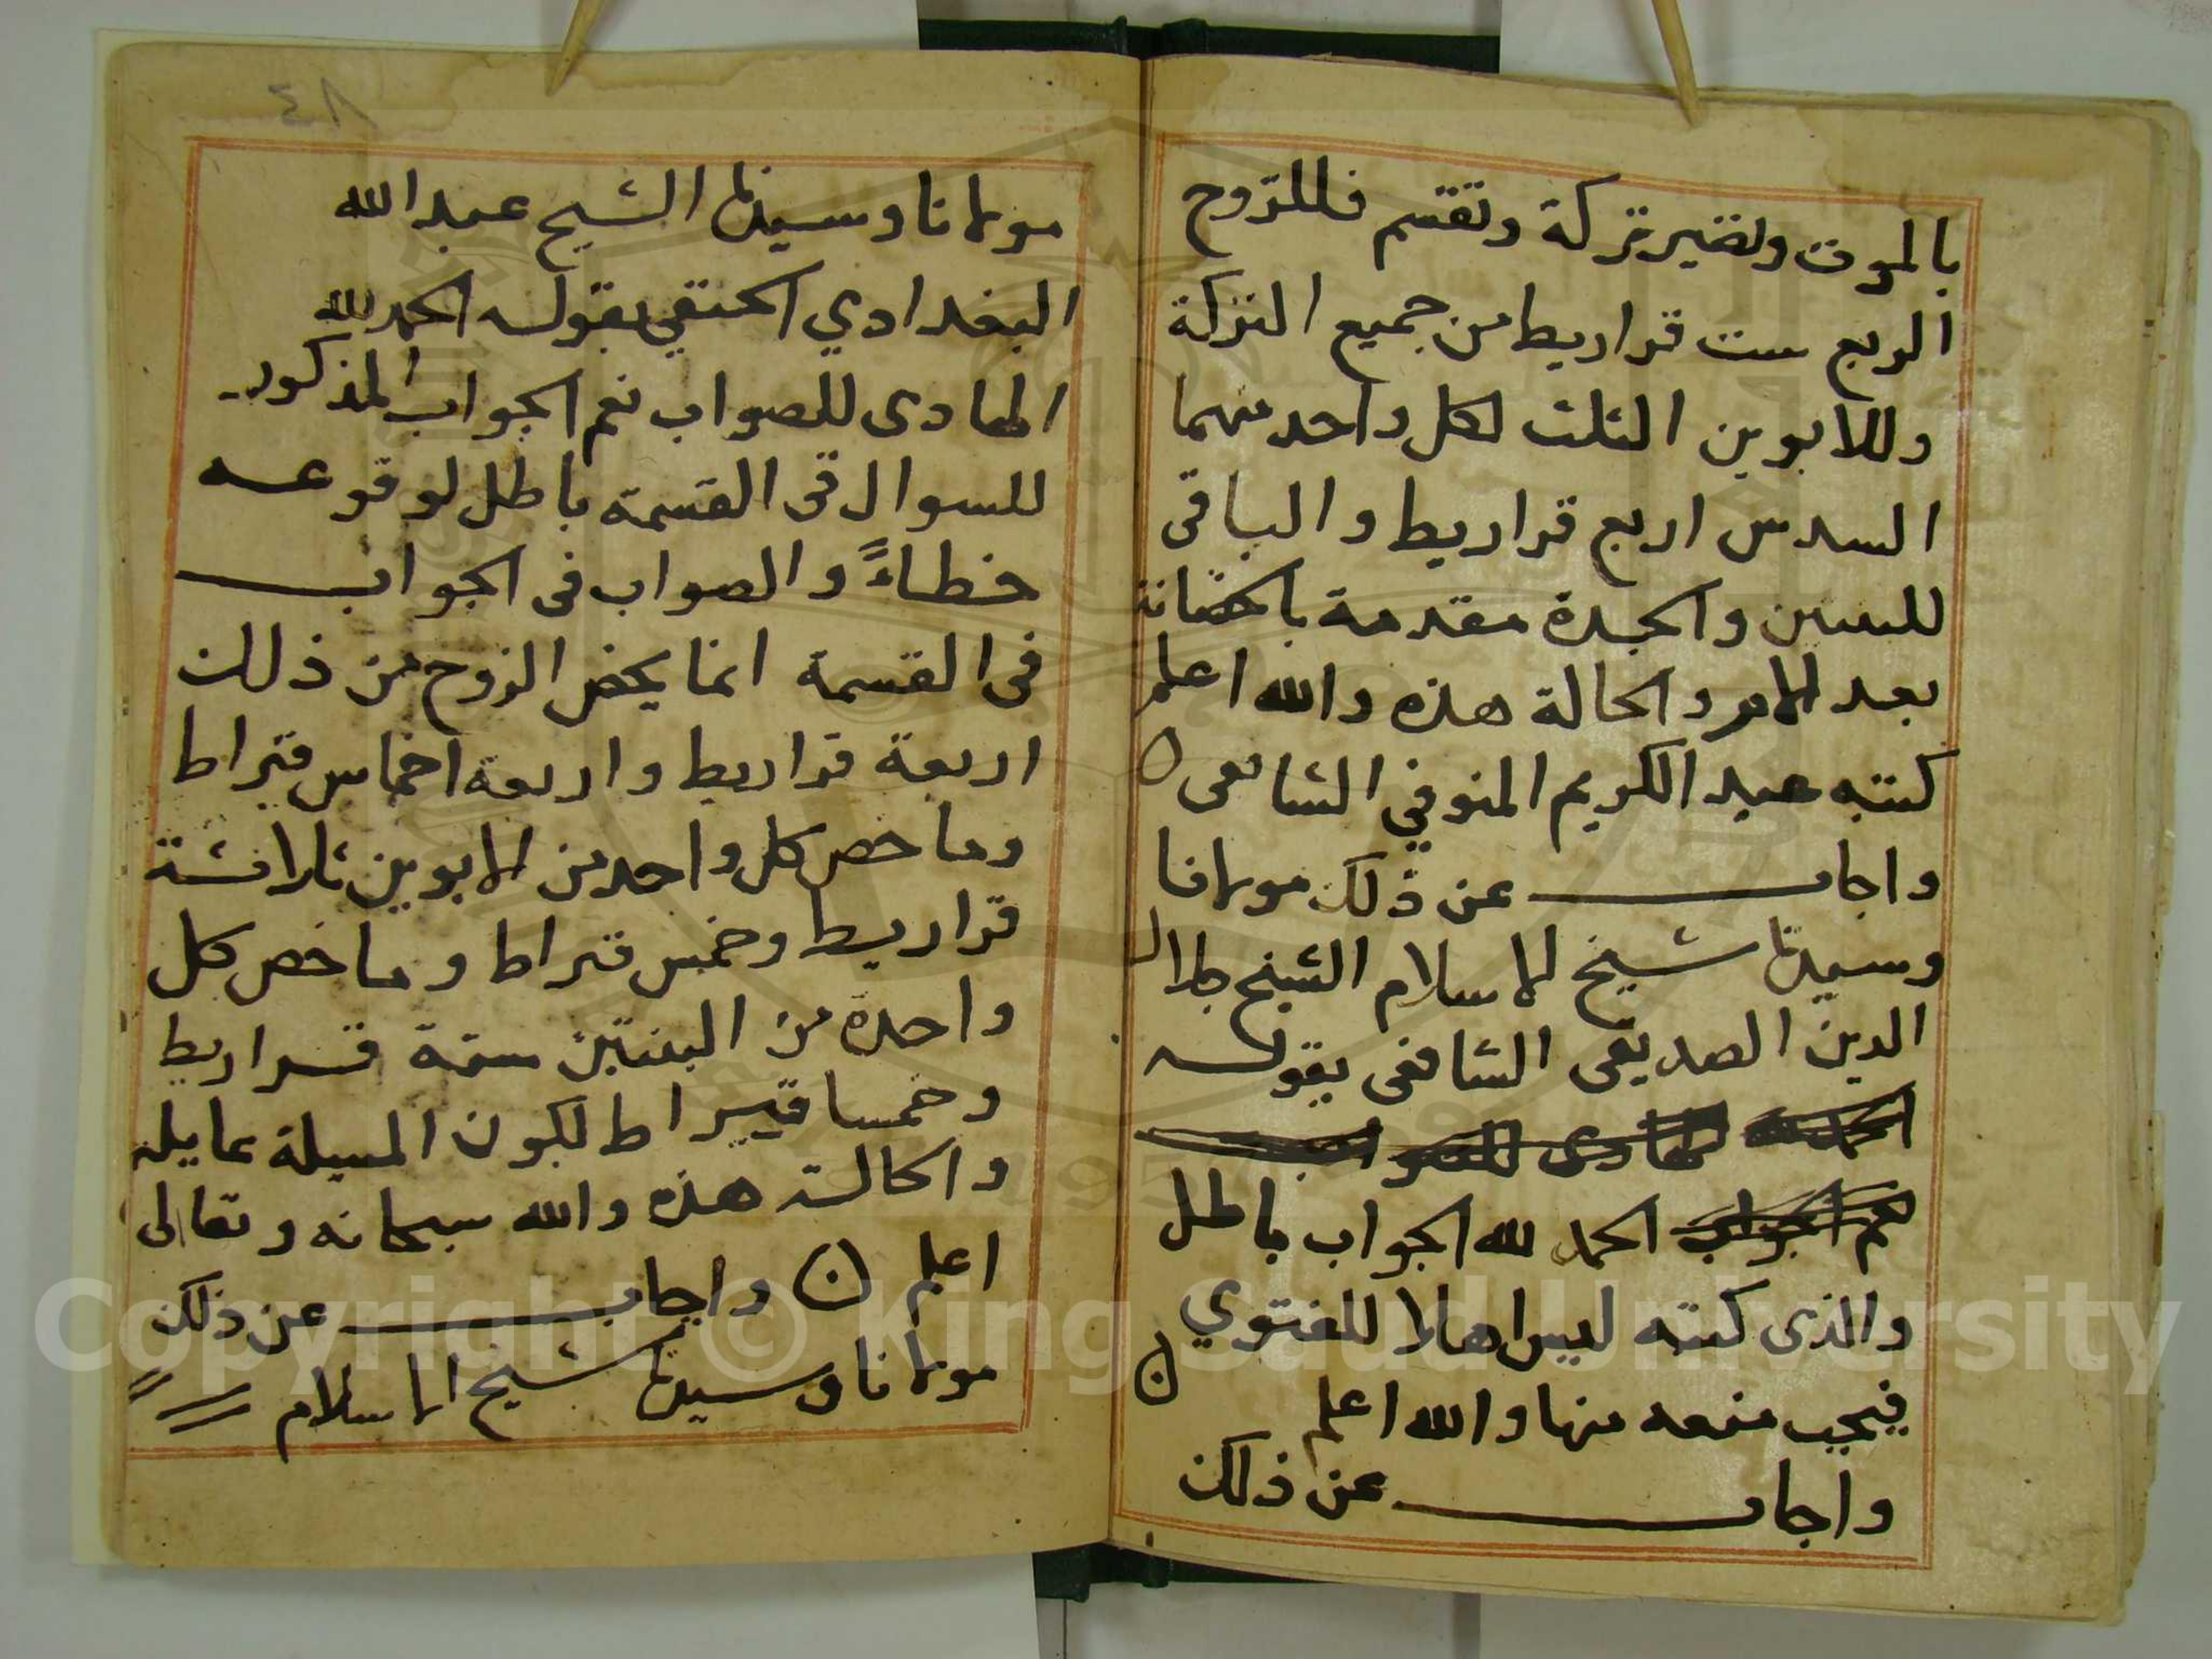 بالموت وتصير تركة وتقسم فللزوج
الربع ست قراريط من جميع التركة
وللابوين الثلث لكل واحد منهما
السدس اربع قراريط والباقى
للبنتين والجدة مقدمة بالحضانة
بعد الام والحالة هذه والله اعلم
كتبه عبد الكريم المنوفي الشافعى ن
واجاب عن ذلك مولانا
وسيدنا شيخ الاسلام الشيخ جلال
الدين الصديقى الشافعى بقوله
الحمد لله الهادى للصواب
نعم الجواب الحمد لله الجواب باطل
والذى كتبه ليس اهلا للفتوي
فيجب منعه منها والله اعلم ن
واجاب عن ذلك
٤٨
مولانا وسيدنا الشيخ عبد الله
البغدادي الحنفي بقوله الحمد لله
الهادى للصواب نعم الجواب المذكور
للسوال فى القسمة باطل لوقوعه
خطاءً والصواب فى الجواب
فى القسمة انما يخص الزوج من ذلك
اربعة قراريط واربعة اخماس قيراط
وما خص كل واحد من الابوين ثلاثة
قراريط وخمس قيراط وما خص كل
واحدة من البنتين ستة قراريط
وخمسا قيراط لكون المسيلة عايلة
والحالة هذه والله سبحانه وتعالى
اعلم ن واجاب عن ذلك
مولانا وسيدنا شيخ الاسلام
Copyright © King Saud University